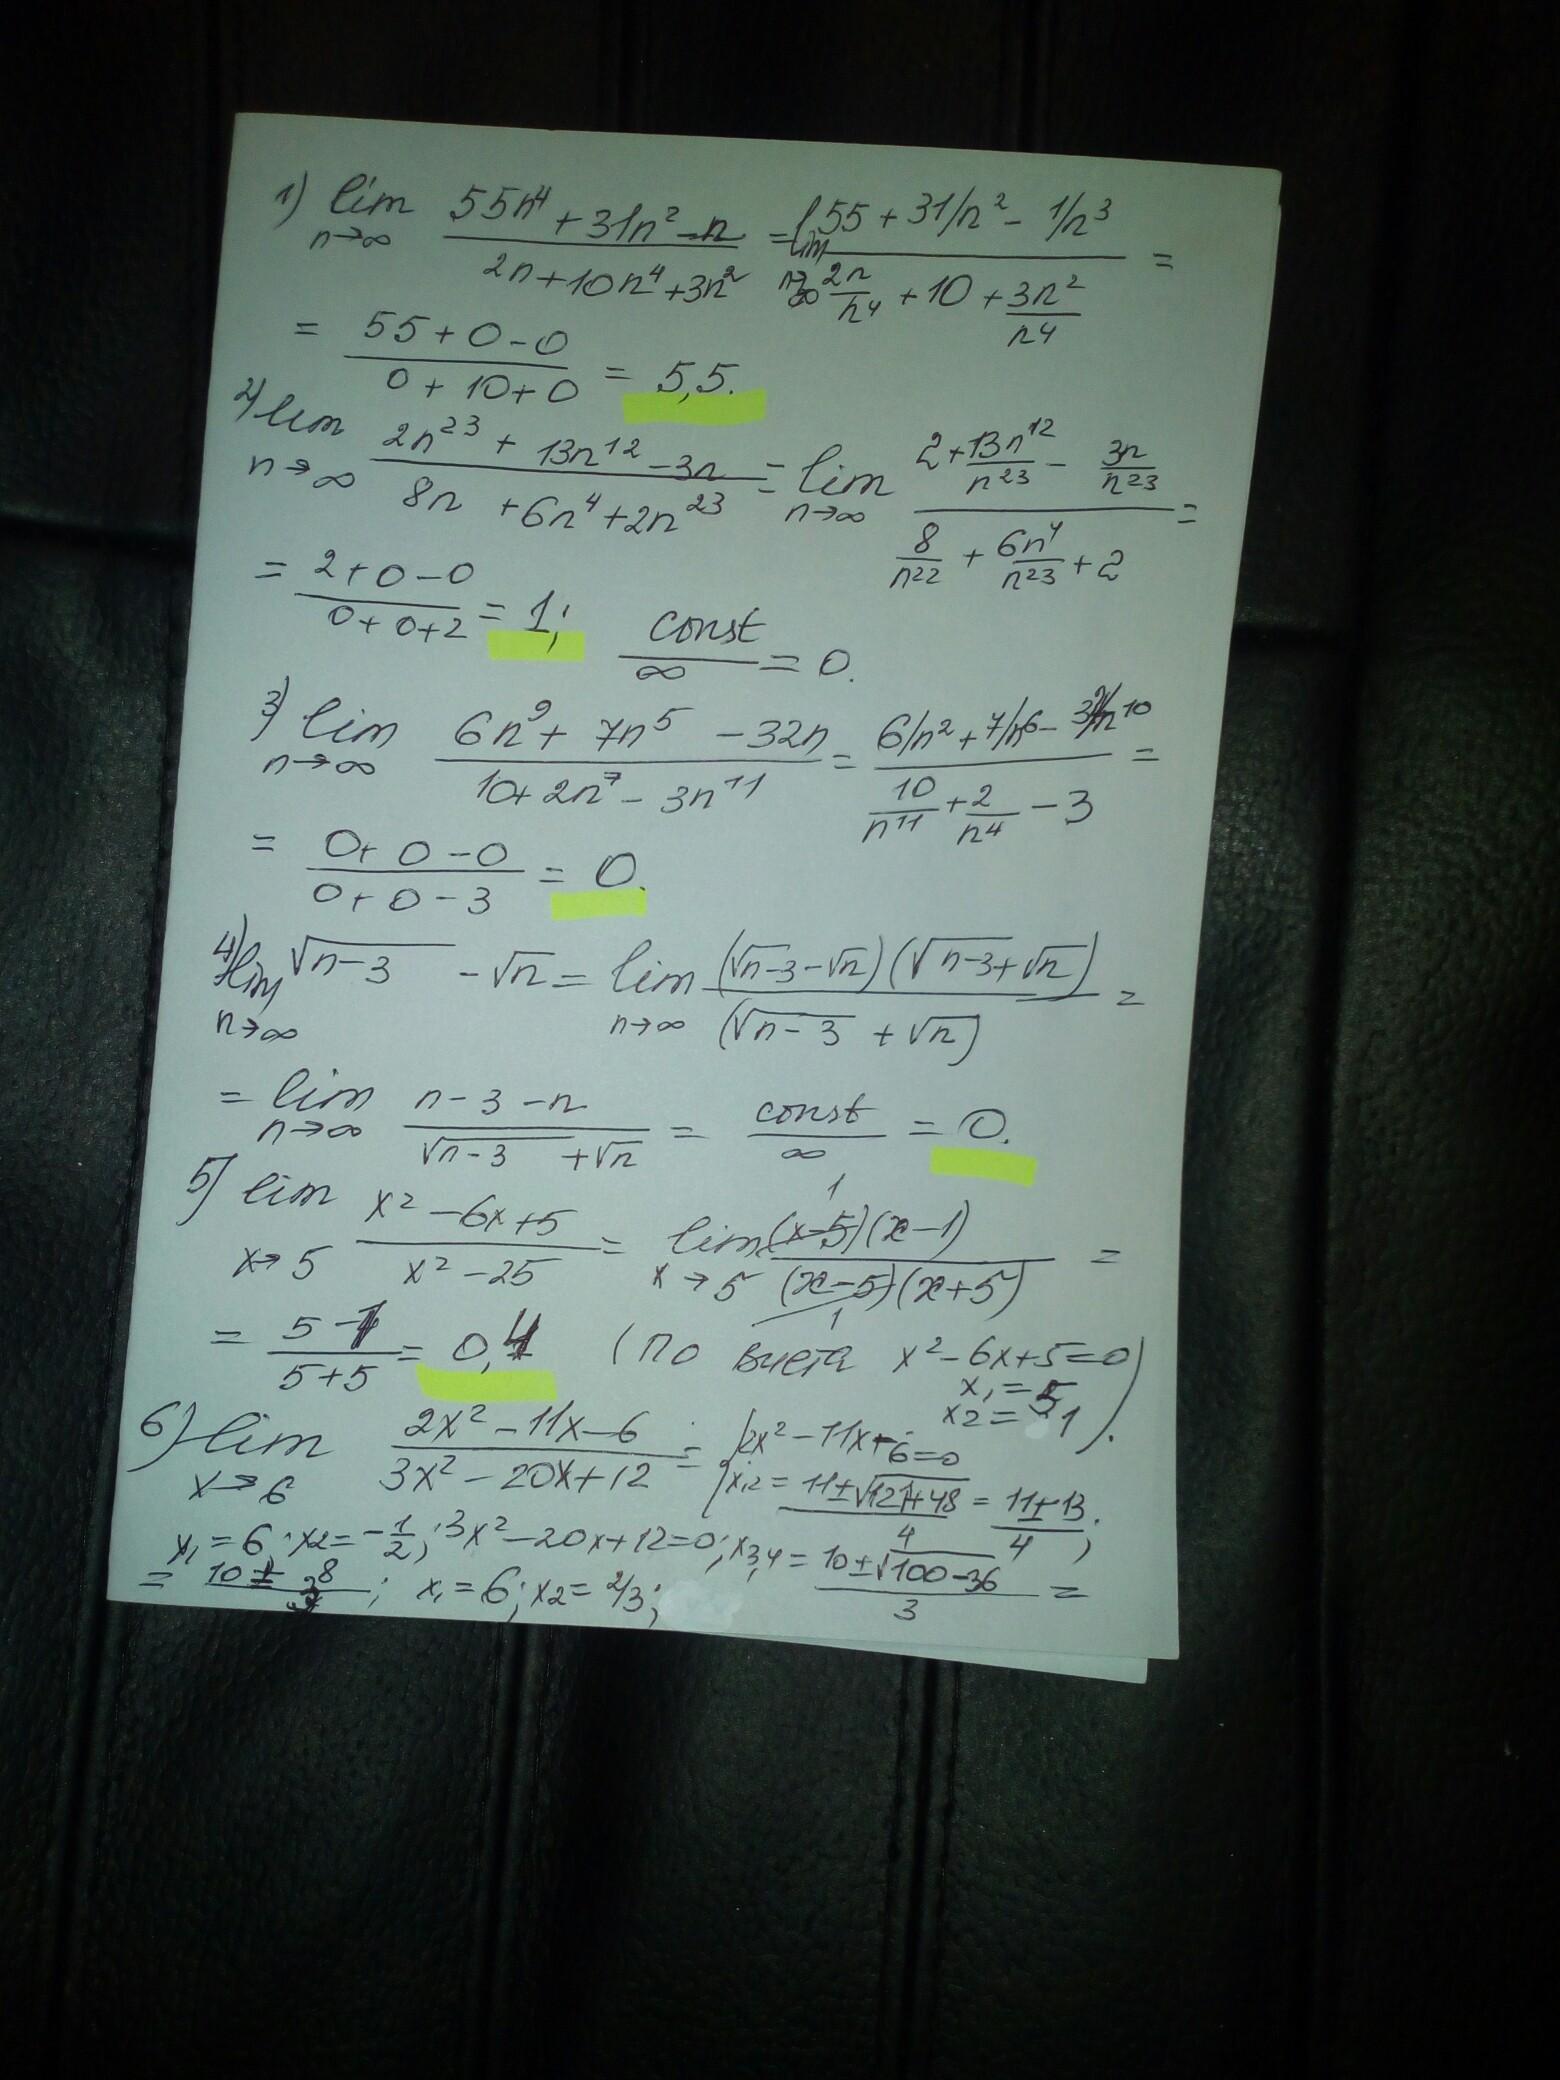 1) lim n→∞ (55n⁴ + 31n² - n)/(2n + 10n⁴ + 3n²) = lim n→∞ (55 + 31/n² - 1/n³)/(2n/n⁴ + 10 + 3n²/n⁴) =
= (55 + 0 - 0)/(0 + 10 + 0) = 5,5.
2) lim n→∞ (2n²³ + 13n¹² - 3n)/(8n + 6n⁴ + 2n²³) = lim n→∞ (2 + 13n¹²/n²³ - 3n/n²³)/(8/n²² + 6n⁴/n²³ + 2) =
= (2 + 0 - 0)/(0 + 0 + 2) = 1; const/∞ = 0.
3) lim n→∞ (6n⁹ + 7n⁵ - 32n)/(10 + 2n⁷ - 3n¹¹) = (6/n² + 7/n⁶ - 32/n¹⁰)/(10/n¹¹ + 2/n⁴ - 3) =
= (0 + 0 - 0)/(0 + 0 - 3) = 0.
4) lim n→∞ √(n-3) - √n = lim n→∞ (√(n-3) - √n)(√(n-3) + √n)/(√(n-3) + √n) =
= lim n→∞ (n - 3 - n)/(√(n-3) + √n) = const/∞ = 0.
5) lim x→5 (x² - 6x + 5)/(x² - 25) = lim x→5 (x-5)(x-1)/(x-5)(x+5) =
= (5 - 1)/(5 + 5) = 0,4 (по виета x² - 6x + 5 = 0
x₁ = 5
x₂ = 1).
6) lim x→6 (2x² - 11x - 6)/(3x² - 20x + 12) = {2x² - 11x - 6 = 0
x₁,₂ = (11 ± √(121 + 48))/4 = (11 ± 13)/4;
x₁ = 6; x₂ = -1/2; 3x² - 20x + 12 = 0; x₃,₄ = (10 ± √(100 - 36))/3 =
= (10 ± 8)/3; x₁ = 6; x₂ = 2/3;